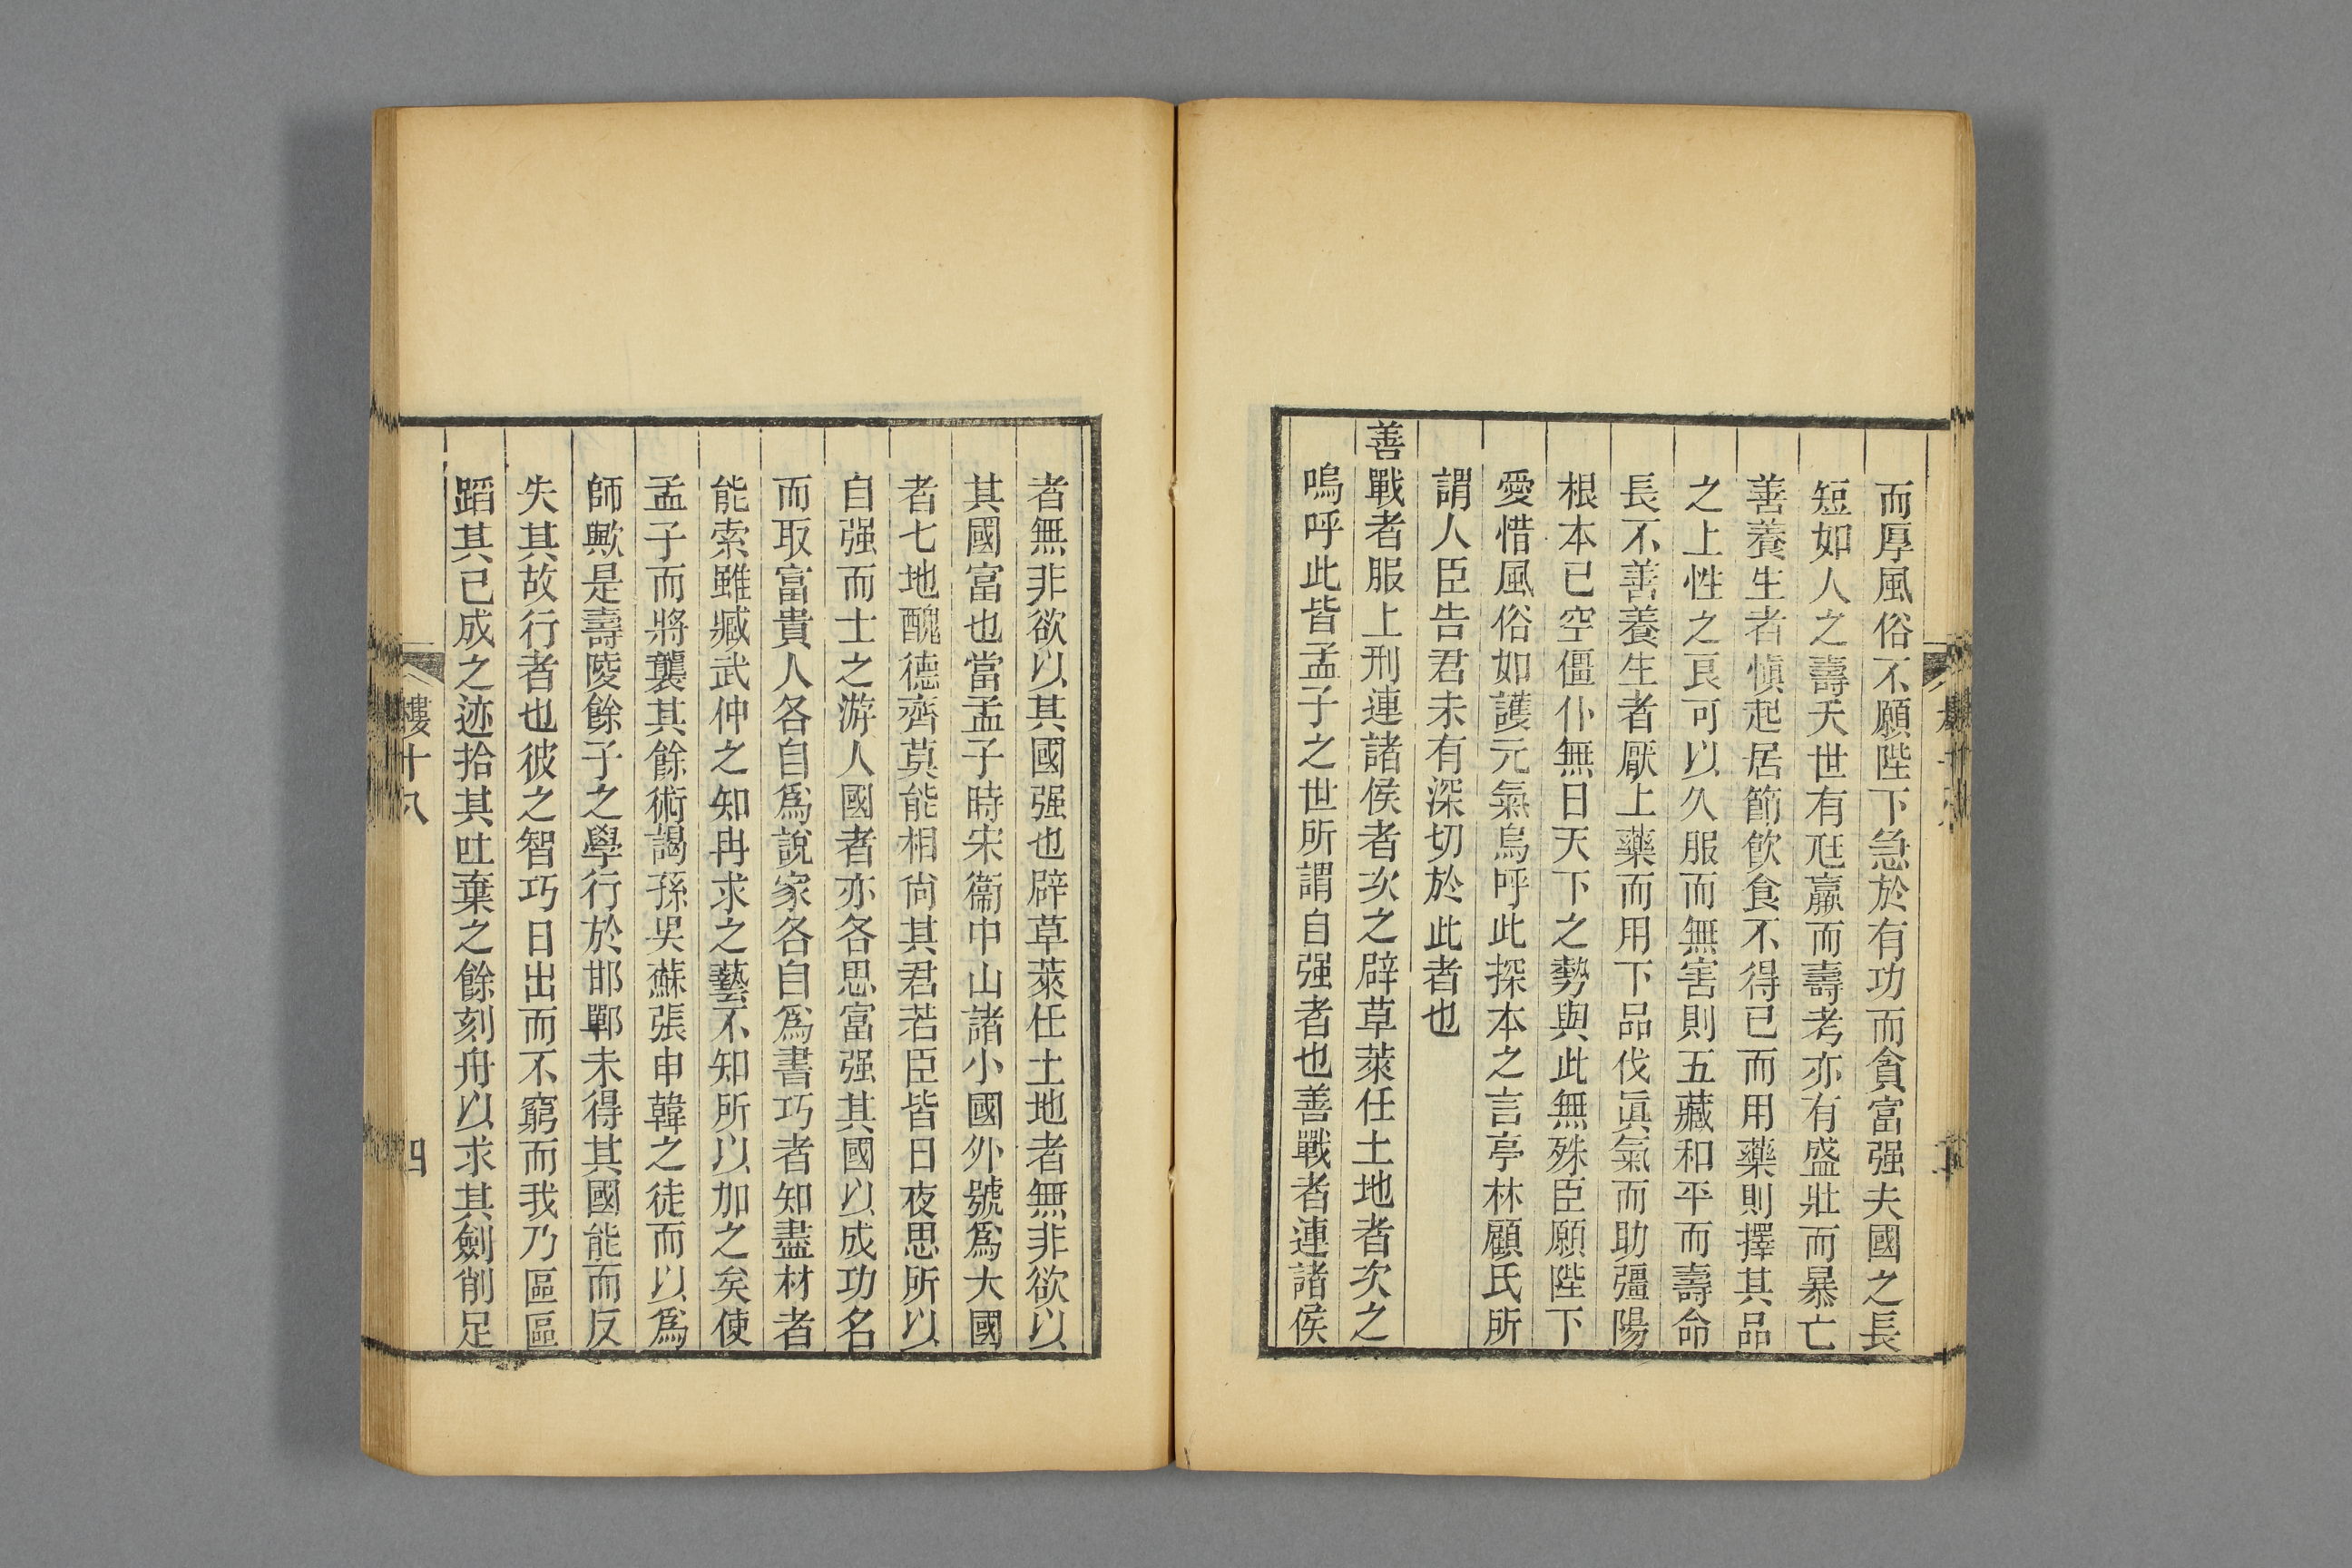 而厚風俗不願陛下急於有功而貪富强夫國之長
短如人之壽夭世有尫羸而壽考亦有盛壯而暴亡
善養生者愼起居節飮食不得已而用藥則擇其品
之上性之良可以久服而無害則五藏和平而壽命
長不善養生者厭上藥而用下品伐眞氣而助彊陽
根本已空僵仆無日天下之勢與此無殊臣願陛下
愛惜風俗如護元氣烏呼此探本之言亭林顧氏所
謂人臣告君未有深切於此者也
善戰者服上刑連諸侯者次之辟草萊任土地者次之
嗚呼此皆孟子之世所謂自强者也善戰者連諸侯
者無非欲以其國强也辟草萊任土地者無非欲以
其國富也當孟子時宋衞中山諸小國外號爲大國
者七地醜德齊莫能相尙其君若臣皆日夜思所以
自强而士之游人國者亦各思富强其國以成功名
而取富貴人各自爲說家各自爲書巧者知盡材者
能索雖臧武仲之知冉求之藝不知所以加之矣使
孟子而將襲其餘術謁孫吳蘇張申韓之徒而以爲
師歟是壽陵餘子之學行於邯鄲未得其國能而反
失其故行者也彼之智巧日出而不窮而我乃區區
蹈其已成之迹拾其吐棄之餘刻舟以求其劍削足
樓十八
四